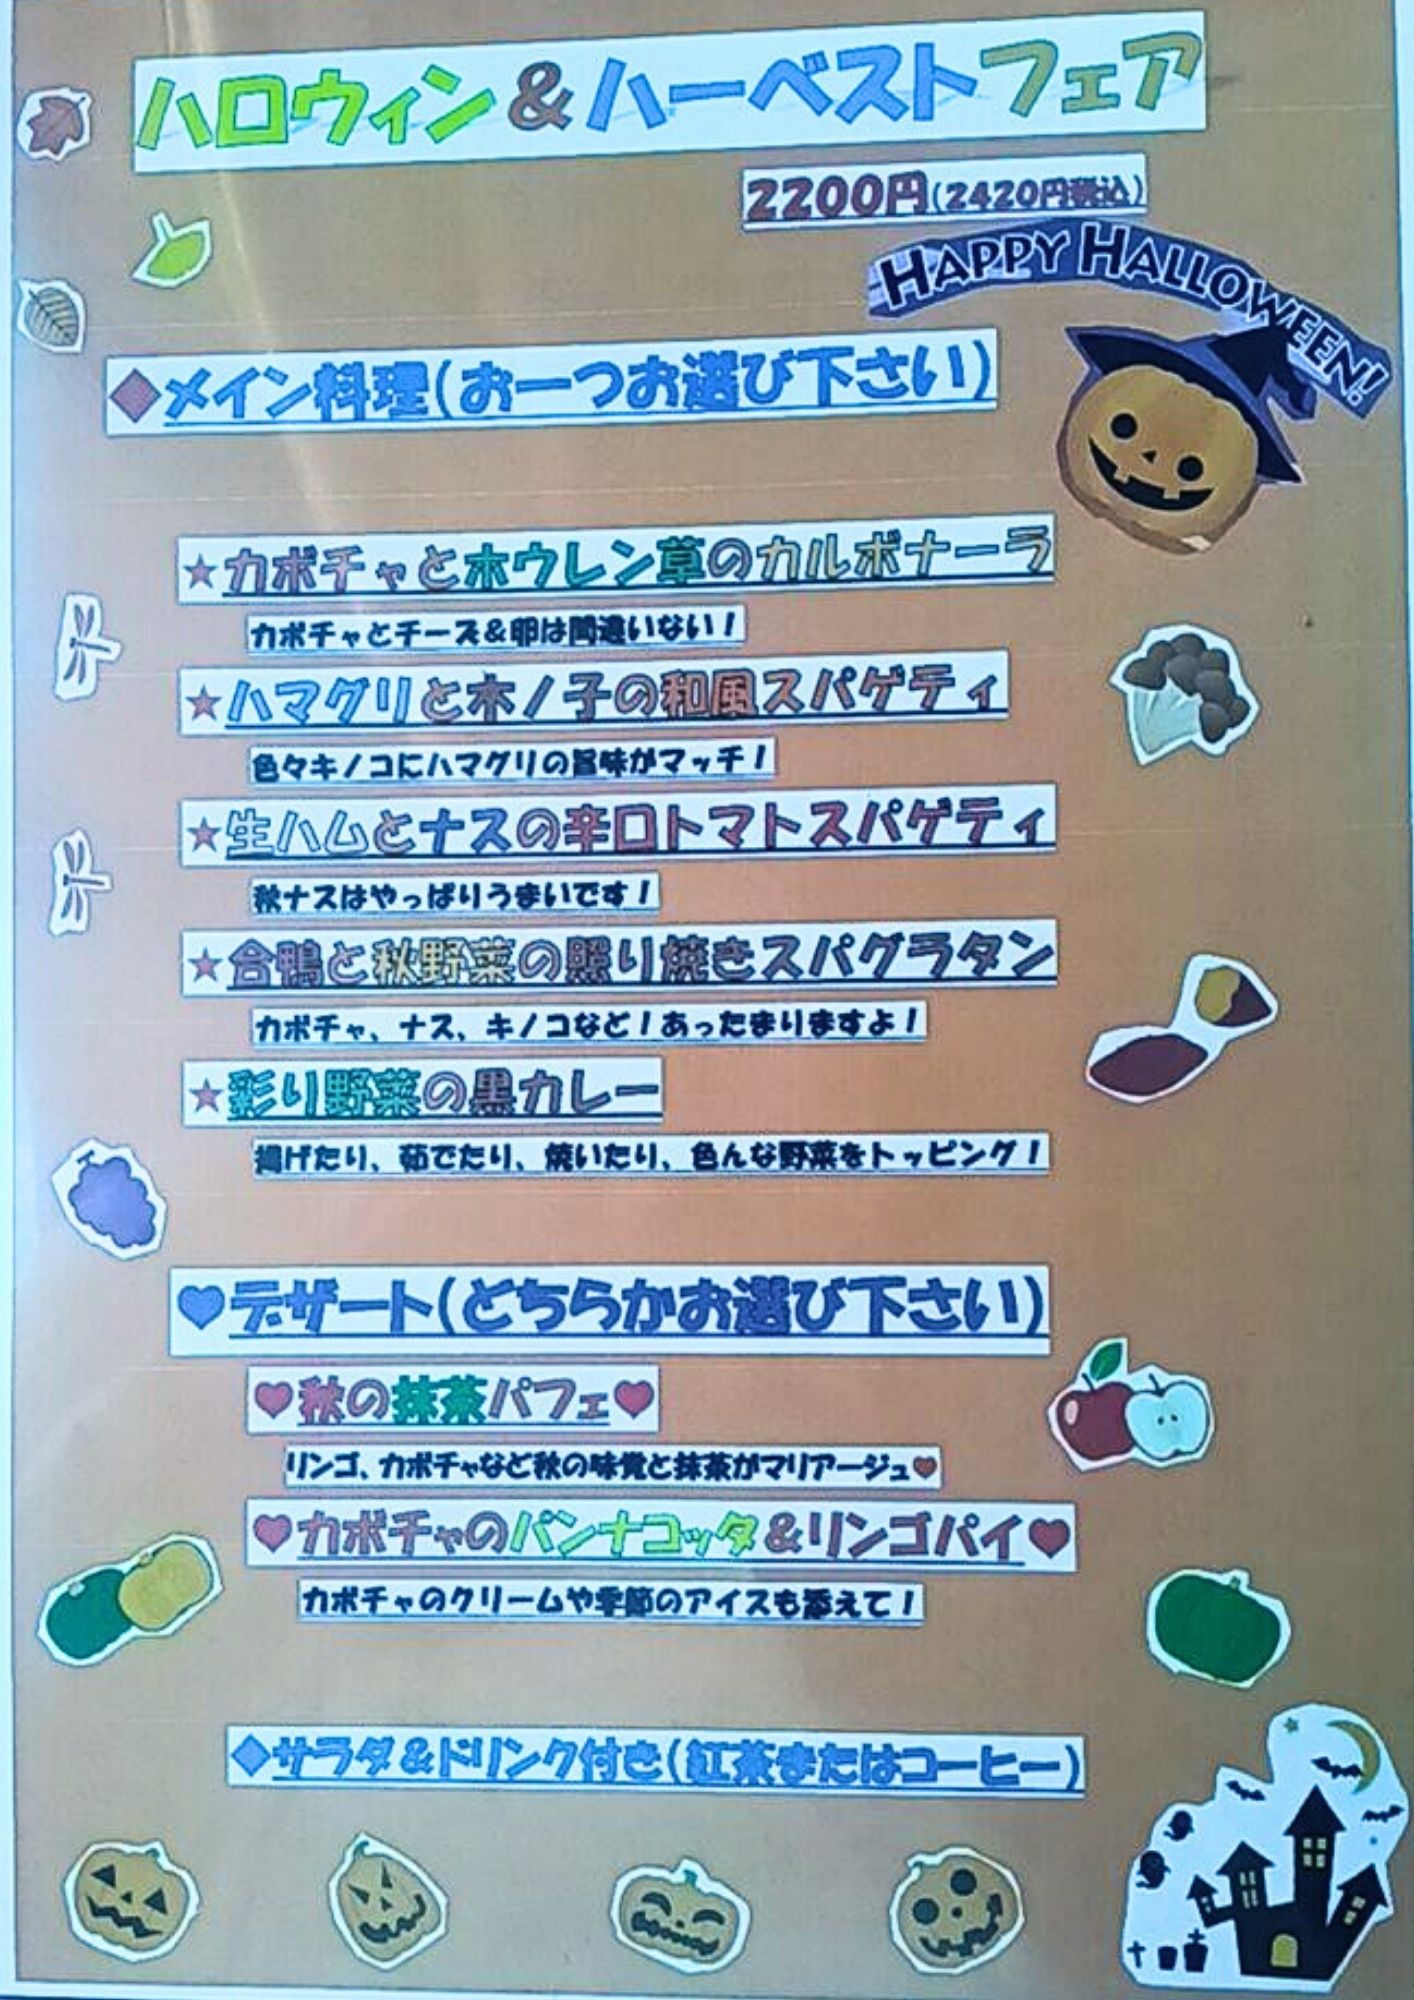 ハロウィン&ハーベストフェア
2200円(2420円税込)
HAPPY HALLOWEEN!
◆メイン料理(お一つお選び下さい)
★カボチャとホウレン草のカルボナーラ
カボチャとチーズ&卵は間違いない!
★ハマグリと木ノ子の和風スパゲティ
色々キノコにハマグリの旨味がマッチ!
★生ハムとナスの辛口トマトスパゲティ
秋ナスはやっぱりうまいです!
★合鴨と秋野菜の照り焼きスパグラタン
カボチャ、ナス、キノコなど!あったまりますよ!
★彩り野菜の黒カレー
揚げたり、茹でたり、焼いたり、色んな野菜をトッピング!
♥デザート(どちらかお選び下さい)
♥秋の抹茶パフェ♥
リンゴ、カボチャなど秋の味覚と抹茶がマリアージュ♥
♥カボチャのパンナコッタ&リンゴパイ♥
カボチャのクリームや季節のアイスも添えて!
◆サラダ&ドリンク付き(紅茶またはコーヒー)